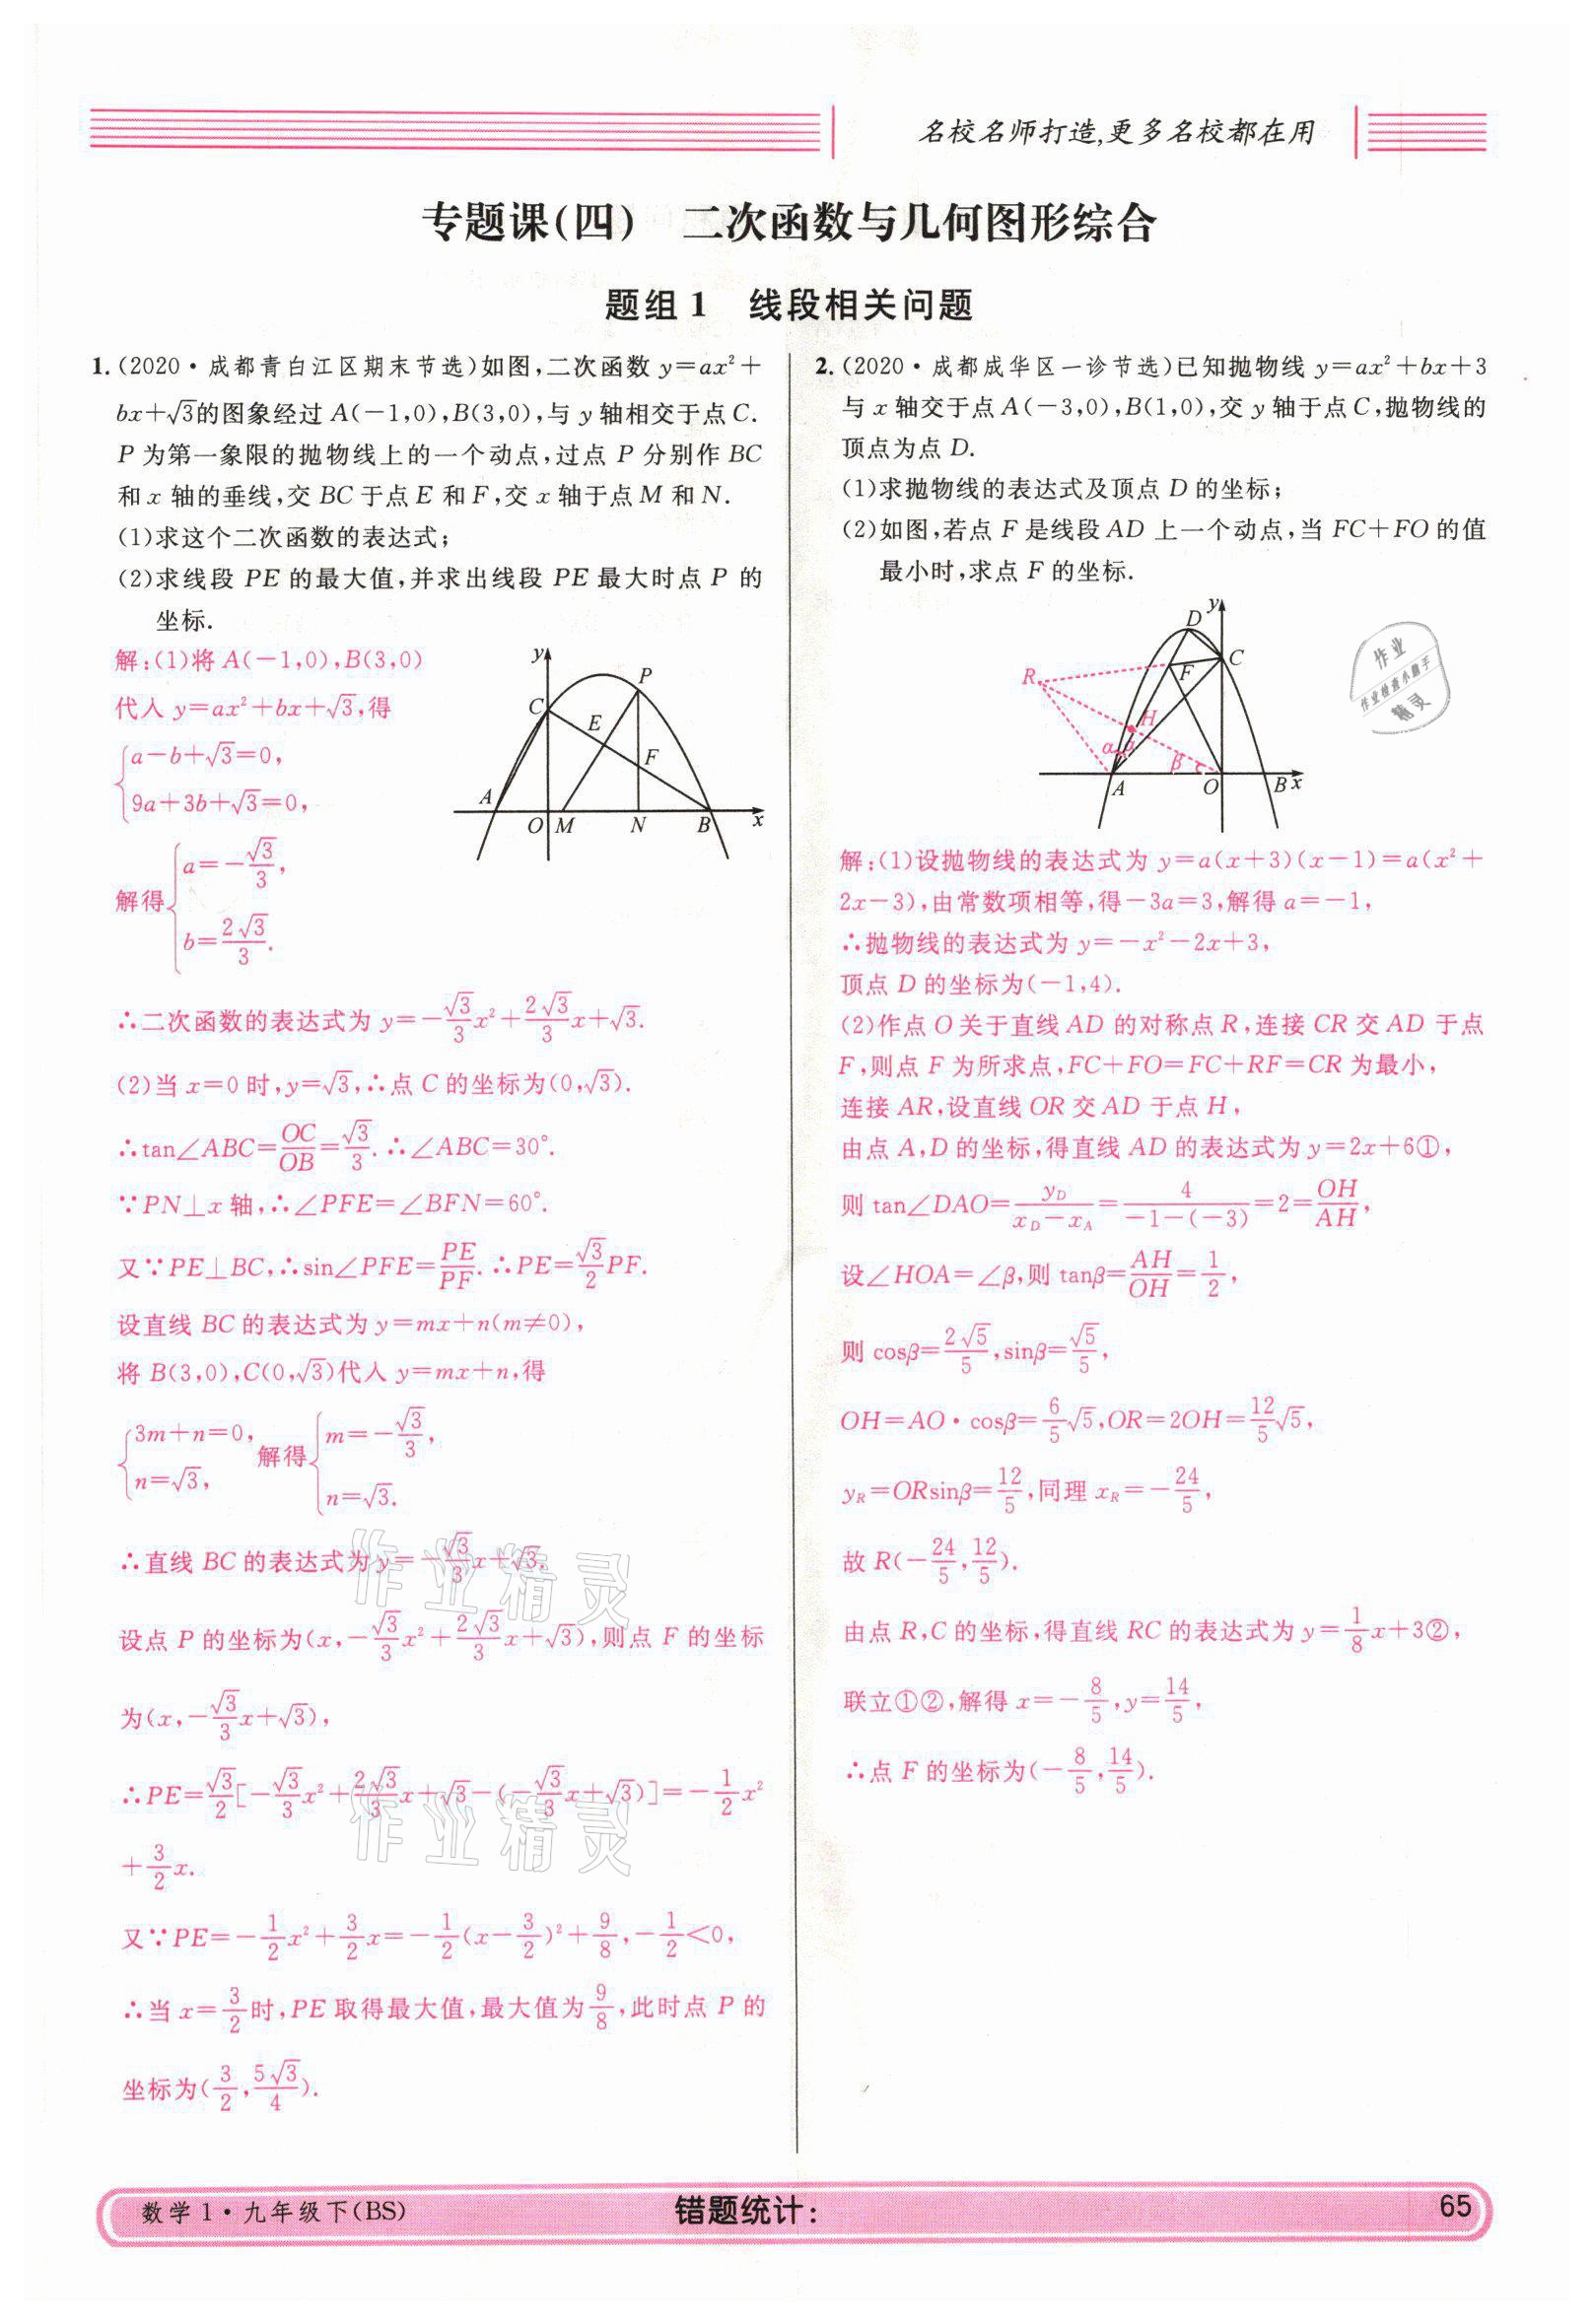 名校名师打造,更多名校都在用
专题课(四) 二次函数与几何图形综合
题组1 线段相关问题
1.(2020·成都青白江区期末节选)如图,二次函数 y=ax²+
bx+√3的图象经过 A(-1,0),B(3,0),与 y 轴相交于点 C.
P 为第一象限的抛物线上的一个动点,过点 P 分别作 BC
和 x 轴的垂线,交 BC 于点 E 和 F,交 x 轴于点 M 和 N.
(1)求这个二次函数的表达式;
(2)求线段 PE 的最大值,并求出线段 PE 最大时点 P 的
坐标.
解:(1)将 A(-1,0),B(3,0)
代入 y=ax²+bx+√3,得
{a-b+√3=0,
9a+3b+√3=0,
解得{a=-√3/3,
b=2√3/3.
y
P
C
E
F
A
O M N B x
∴二次函数的表达式为 y=-√3/3x²+2√3/3x+√3.
(2)当 x=0 时,y=√3,∴点 C 的坐标为(0,√3).
∴tan∠ABC=OC/OB=√3/3.∴∠ABC=30°.
∵PN⊥x 轴,∴∠PFE=∠BFN=60°.
又∵PE⊥BC,∴sin∠PFE=PE/PF.∴PE=√3/2PF.
设直线 BC 的表达式为 y=mx+n(m≠0),
将 B(3,0),C(0,√3)代入 y=mx+n,得
{3m+n=0,
n=√3,
解得{m=-√3/3,
n=√3.
∴直线 BC 的表达式为 y=-√3/3x+√3.
设点 P 的坐标为(x,-√3/3x²+2√3/3x+√3),则点 F 的坐标
为(x,-√3/3x+√3),
∴PE=√3/2[-√3/3x²+2√3/3x+√3-(-√3/3x+√3)]=-1/2x²
+3/2x.
又∵PE=-1/2x²+3/2x=-1/2(x-3/2)²+9/8,-1/2<0,
∴当 x=3/2时,PE 取得最大值,最大值为9/8,此时点 P 的
坐标为(3/2,5√3/4).
2.(2020·成都成华区一诊节选)已知抛物线 y=ax²+bx+3
与 x 轴交于点 A(-3,0),B(1,0),交 y 轴于点 C,抛物线的
顶点为点 D.
(1)求抛物线的表达式及顶点 D 的坐标;
(2)如图,若点 F 是线段 AD 上一个动点,当 FC+FO 的值
最小时,求点 F 的坐标.
y
D
C
F
R
H
α
β
A O B x
作业
作业检查小助手
精灵
解:(1)设抛物线的表达式为 y=a(x+3)(x-1)=a(x²+
2x-3),由常数项相等,得-3a=3,解得 a=-1,
∴抛物线的表达式为 y=-x²-2x+3,
顶点 D 的坐标为(-1,4).
(2)作点 O 关于直线 AD 的对称点 R,连接 CR 交 AD 于点
F,则点 F 为所求点,FC+FO=FC+RF=CR 为最小,
连接 AR,设直线 OR 交 AD 于点 H,
由点 A,D 的坐标,得直线 AD 的表达式为 y=2x+6①,
则 tan∠DAO=y_D/(x_D-x_A)=4/(-1-(-3))=2=OH/AH,
设∠HOA=∠β,则 tanβ=AH/OH=1/2,
则 cosβ=2√5/5,sinβ=√5/5,
OH=AO·cosβ=6/5√5,OR=2OH=12/5√5,
y_R=ORsinβ=12/5,同理 x_R=-24/5,
故 R(-24/5,12/5).
由点 R,C 的坐标,得直线 RC 的表达式为 y=1/8x+3②,
联立①②,解得 x=-8/5,y=14/5,
∴点 F 的坐标为(-8/5,14/5).
作业精灵
作业精灵
数学1·九年级下(BS)
错题统计:
65